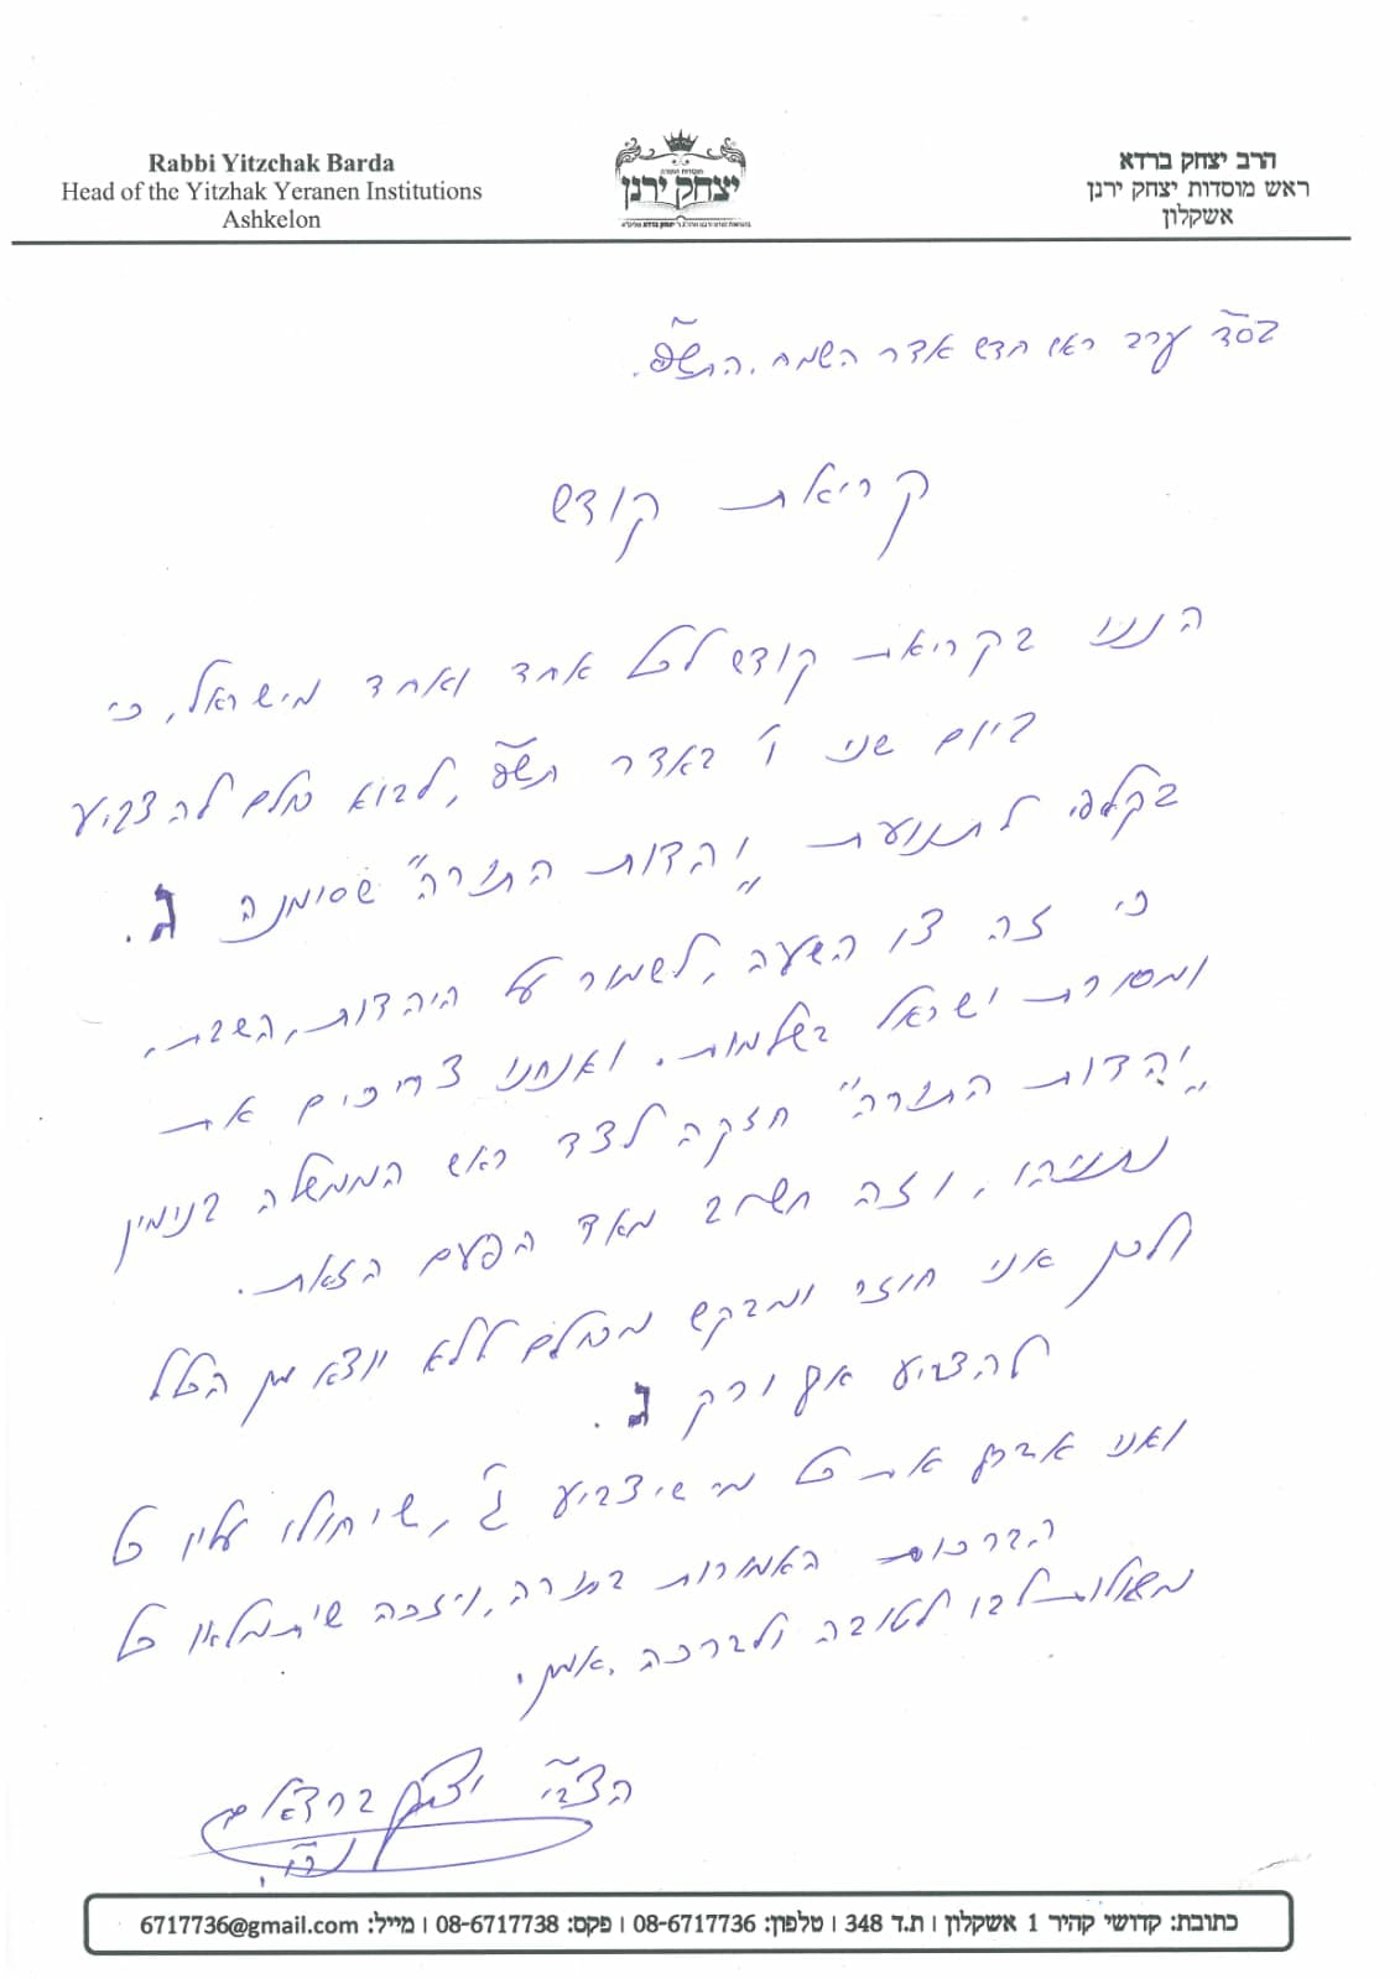 Rabbi Yitzchak Barda
Head of the Yitzhak Yeranen Institutions
Ashkelon
יצחק ירנן
הרב יצחק ברדא
ראש מוסדות יצחק ירנן
אשקלון
בס"ד ערב ראש חדש אדר השמח. התש"פ.
קריאת קודש
הננו בקריאת קודש לכל אחד ואחד מישראל, כי
ביום שני ו' באדר תש"פ, לבוא כולם להצביע
בקלפי לתנועת "יהדות התורה" שסימנה ג.
כי זה צו השעה, לשמור על היהדות, השבת,
ומסורת ישראל בשלמות. ואנחנו צריכים את
"יהדות התורה" חזקה לצד ראש הממשלה בנימין
נתניהו, וזה חשוב מאד הפעם הזאת.
ולכן אני חוזר ומבקש מכולם ללא יוצא מן הכלל
להצביע אך ורק ג.
ואני אברך את כל מי שיצביע ג', שיחולו עליו כל
הברכות האמורות בתורה, ויזכה שיתמלאו כל
משאלות לבו לטובה ולברכה. אמן.
הצב"י יצחק ברצאלים
נר"ו.
כתובת: קדושי קהיר 1 אשקלון | ת.ד 348 | טלפון: 08-6717736 | פקס: 08-6717738 | מייל: 6717736@gmail.com